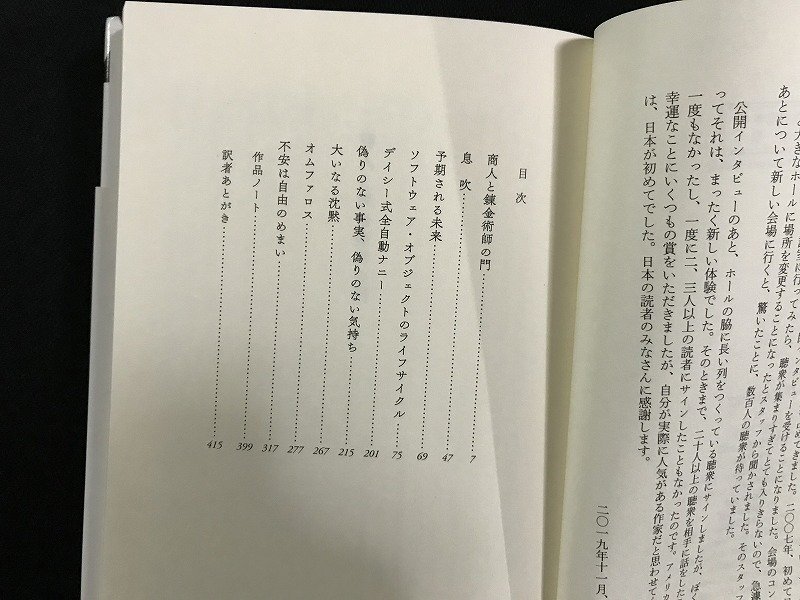 あとについて新しい会場に行くと、驚いたことに、数百人の聴衆が待っていました。
公開インタビューのあと、ホールの脇に長い列をつくっている聴衆にサインしましたが、ぼく
ってそれは、まったく新しい体験でした。そのときまで、二十人以上の聴衆を相手に話をした
一度もなかったし、一度に二、三人以上の読者にサインしたこともなかったのです。アメリカ
幸運なことにいくつもの賞をいただきましたが、自分が実際に人気がある作家だと思わせて
は、日本が初めてでした。日本の読者のみなさんに感謝します。
二〇一九年十一月、
目次
商人と錬金術師の門 7
息吹 47
予期される未来 69
ソフトウェア・オブジェクトのライフサイクル 75
デイシー式全自動ナニー 201
偽りのない事実、偽りのない気持ち 215
大いなる沈黙 267
オムファロス 277
不安は自由のめまい 317
作品ノート 399
訳者あとがき 415